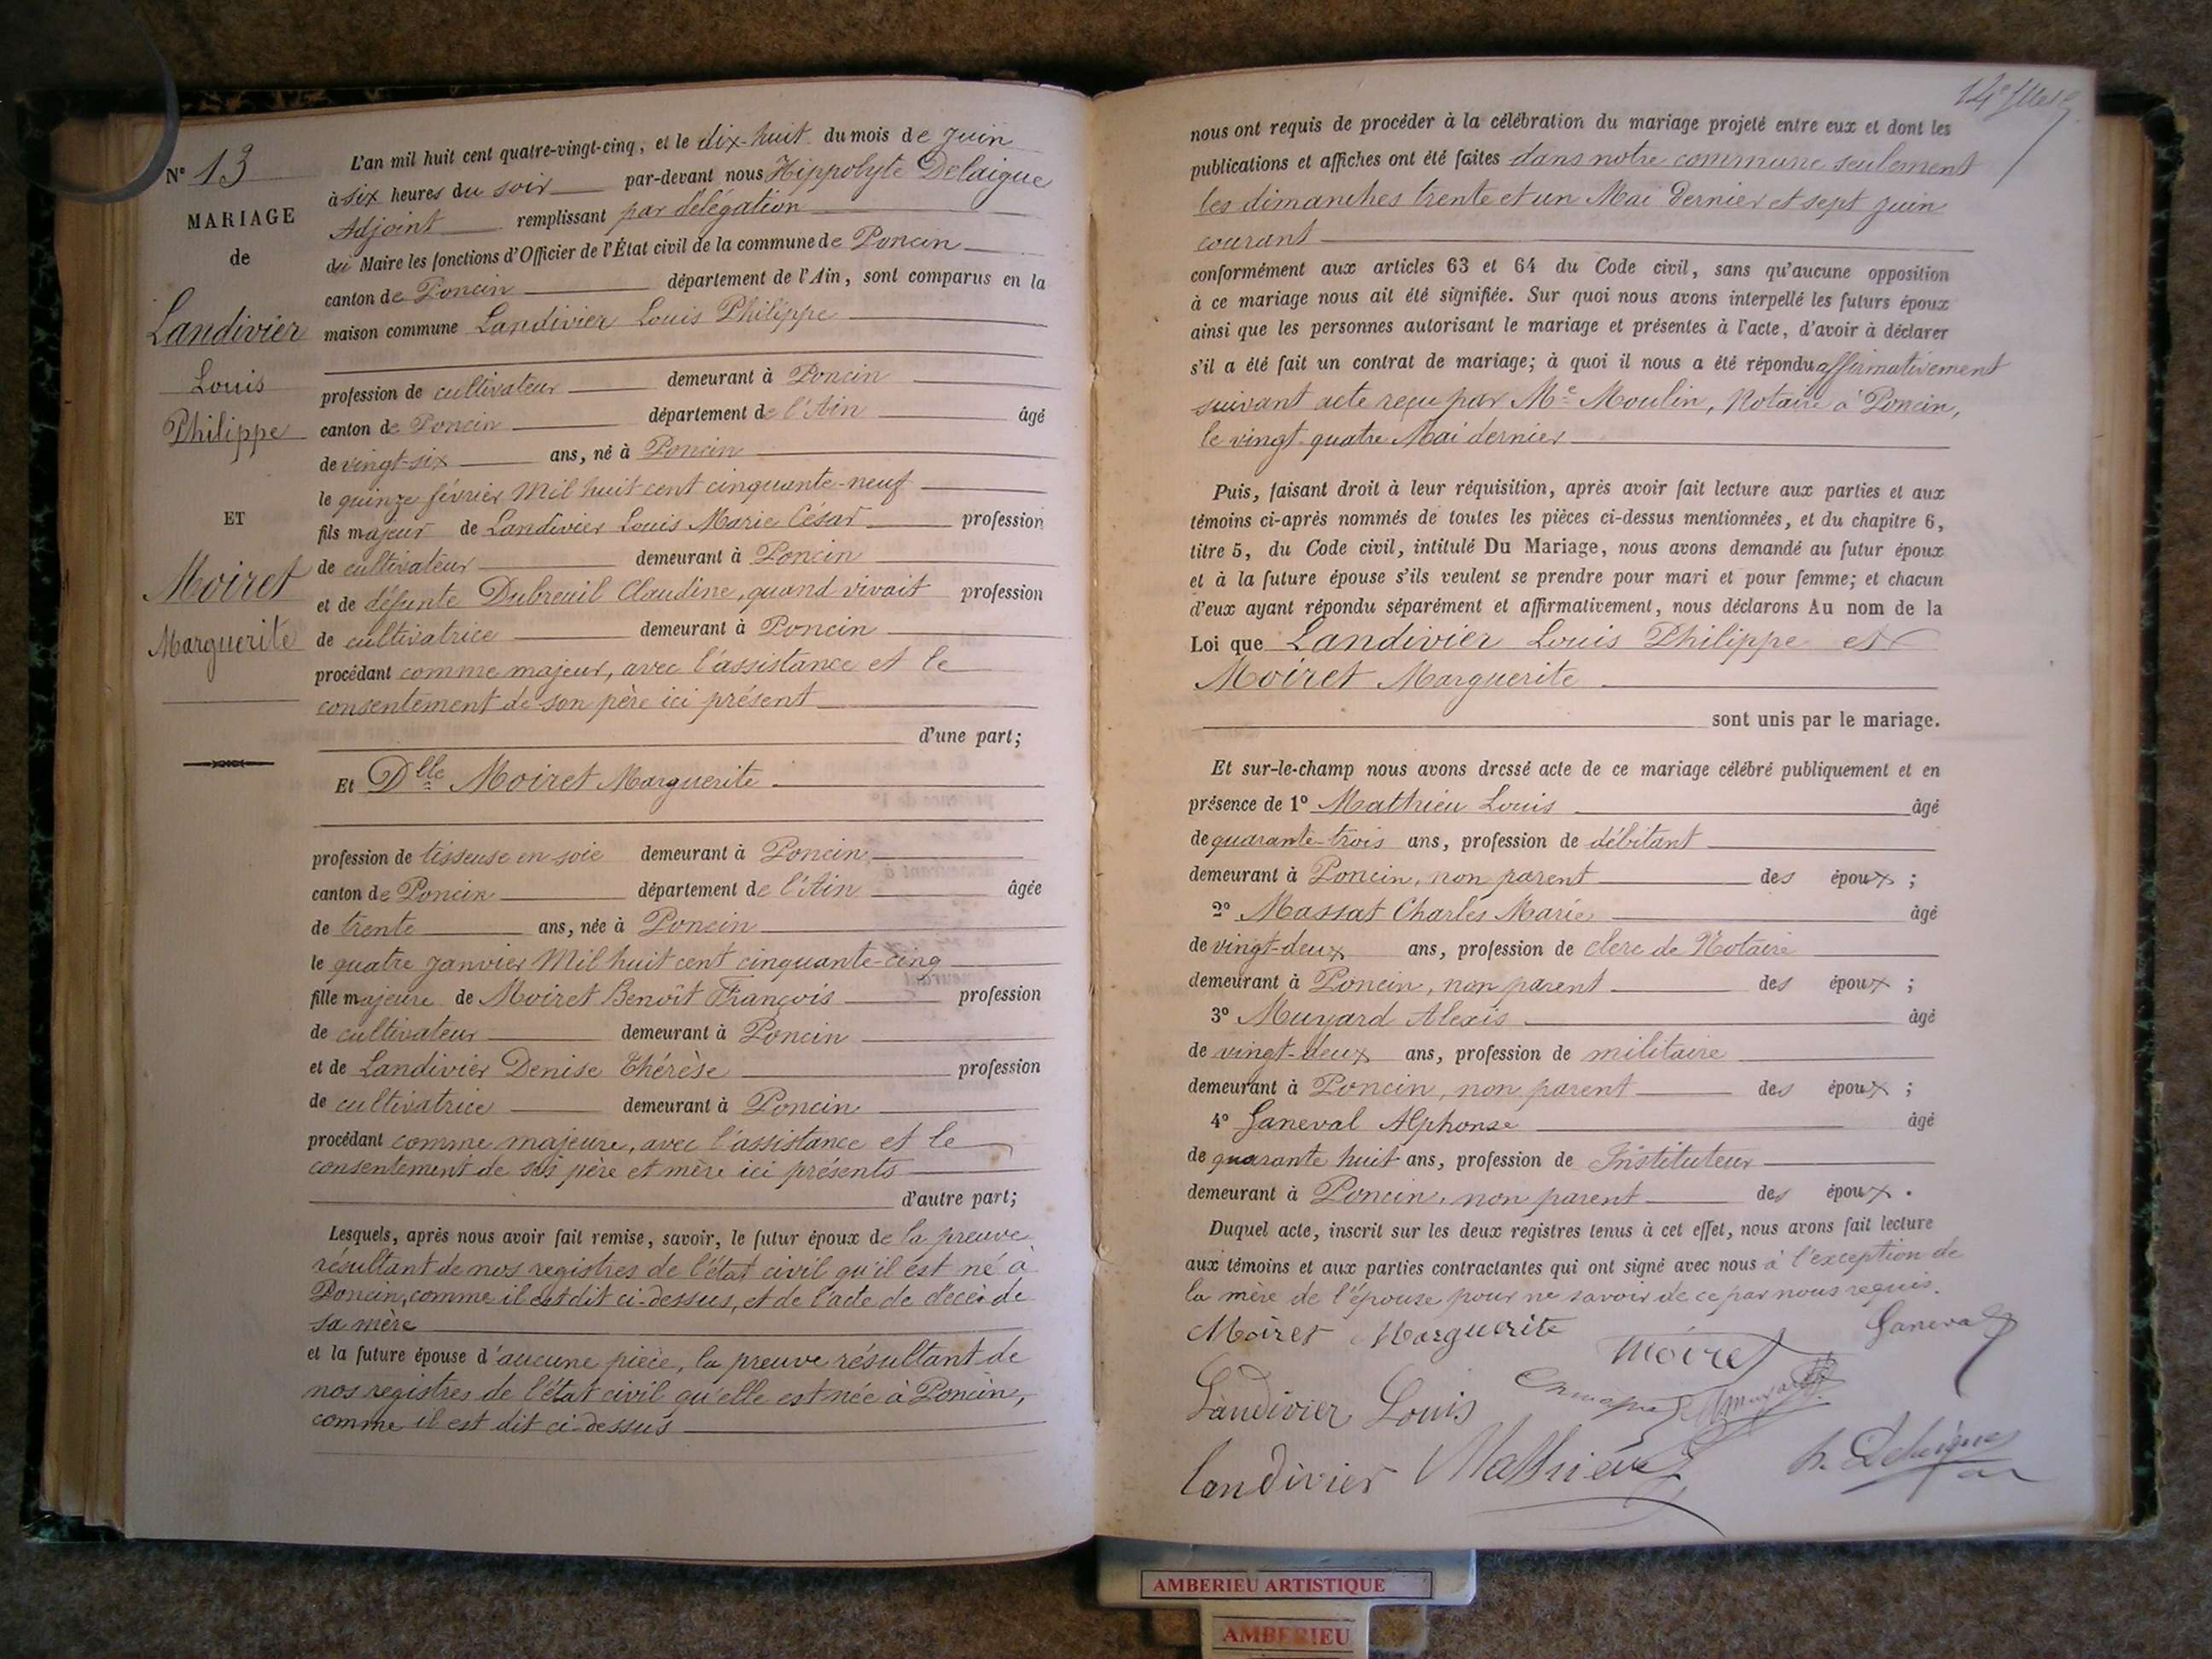 N° 13
MARIAGE
de
Landivier
Louis
Philippe
ET
Moiret
Marguerite
L'an mil huit cent quatre-vingt-cinq, et le dix-huit du mois de juin
à six heures du soir par-devant nous Hippolyte Delaigue
Adjoint remplissant par délégation
du Maire les fonctions d'Officier de l'État civil de la commune de Poncin
canton de Poncin département de l'Ain, sont comparus en la
maison commune Landivier Louis Philippe
profession de cultivateur demeurant à Poncin
canton de Poncin département de l'Ain âgé
de vingt-six ans, né à Poncin
le quinze février Mil huit cent cinquante-neuf
fils majeur de Landivier Louis Marie César profession
de cultivateur demeurant à Poncin
et de défunte Dubreuil Claudine, quand vivait profession
de cultivatrice demeurant à Poncin
procédant comme majeur, avec l'assistance et le
consentement de son père ici présent
d'une part;
Et Dlle Moiret Marguerite
profession de tisseuse en soie demeurant à Poncin
canton de Poncin département de l'Ain âgée
de trente ans, née à Poncin
le quatre janvier Mil huit cent cinquante-cinq
fille majeure de Moiret Benoît François profession
de cultivateur demeurant à Poncin
et de Landivier Denise Thérèse profession
de cultivatrice demeurant à Poncin
procédant comme majeure, avec l'assistance et le
consentement de ses père et mère ici présents
d'autre part;
Lesquels, après nous avoir fait remise, savoir, le futur époux de la preuve
résultant de nos registres de l'état civil qu'il est né à
Poncin, comme il est dit ci-dessus, et de l'acte de décès de
sa mère
et la future épouse d'aucune pièce, la preuve résultant de
nos registres de l'état civil qu'elle est née à Poncin,
comme il est dit ci-dessus
nous ont requis de procéder à la célébration du mariage projeté entre eux et dont les
publications et affiches ont été faites dans notre commune seulement
les dimanches trente et un Mai dernier et sept juin
courant
conformément aux articles 63 et 64 du Code civil, sans qu'aucune opposition
à ce mariage nous ait été signifiée. Sur quoi nous avons interpellé les futurs époux
ainsi que les personnes autorisant le mariage et présentes à l'acte, d'avoir à déclarer
s'il a été fait un contrat de mariage; à quoi il nous a été répondu affirmativement
suivant acte reçu par Me Moulin, Notaire à Poncin,
le vingt-quatre Mai dernier
Puis, faisant droit à leur réquisition, après avoir fait lecture aux parties et aux
témoins ci-après nommés de toutes les pièces ci-dessus mentionnées, et du chapitre 6,
titre 5, du Code civil, intitulé Du Mariage, nous avons demandé au futur époux
et à la future épouse s'ils veulent se prendre pour mari et pour femme; et chacun
d'eux ayant répondu séparément et affirmativement, nous déclarons Au nom de la
Loi que Landivier Louis Philippe et
Moiret Marguerite
sont unis par le mariage.
Et sur-le-champ nous avons dressé acte de ce mariage célébré publiquement et en
présence de 1° Mathieu Louis âgé
de quarante-trois ans, profession de débitant
demeurant à Poncin, non parent des époux ;
2° Massat Charles Marie âgé
de vingt-deux ans, profession de clerc de Notaire
demeurant à Poncin, non parent des époux ;
3° Muyard Alexis âgé
de vingt-deux ans, profession de militaire
demeurant à Poncin, non parent des époux ;
4° Ganeval Alphonse âgé
de quarante huit ans, profession de Instituteur
demeurant à Poncin, non parent des époux .
Duquel acte, inscrit sur les deux registres tenus à cet effet, nous avons fait lecture
aux témoins et aux parties contractantes qui ont signé avec nous à l'exception de
la mère de l'épouse pour ne savoir de ce par nous requis.
Moiret Marguerite moiret Ganeval
Landivier Louis
Landivier Mathieu h. Delaigue
AMBERIEU ARTISTIQUE
AMBERIEU